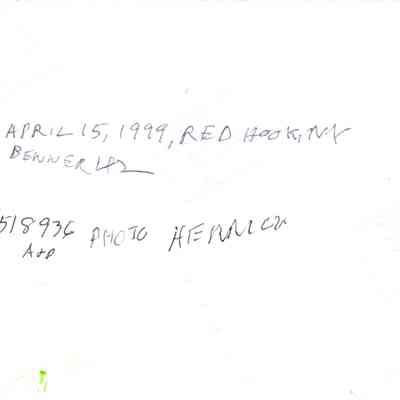 APRIL 15, 1999, RED HOOK, NY
BENNER
518936 PHOTO HERRICK